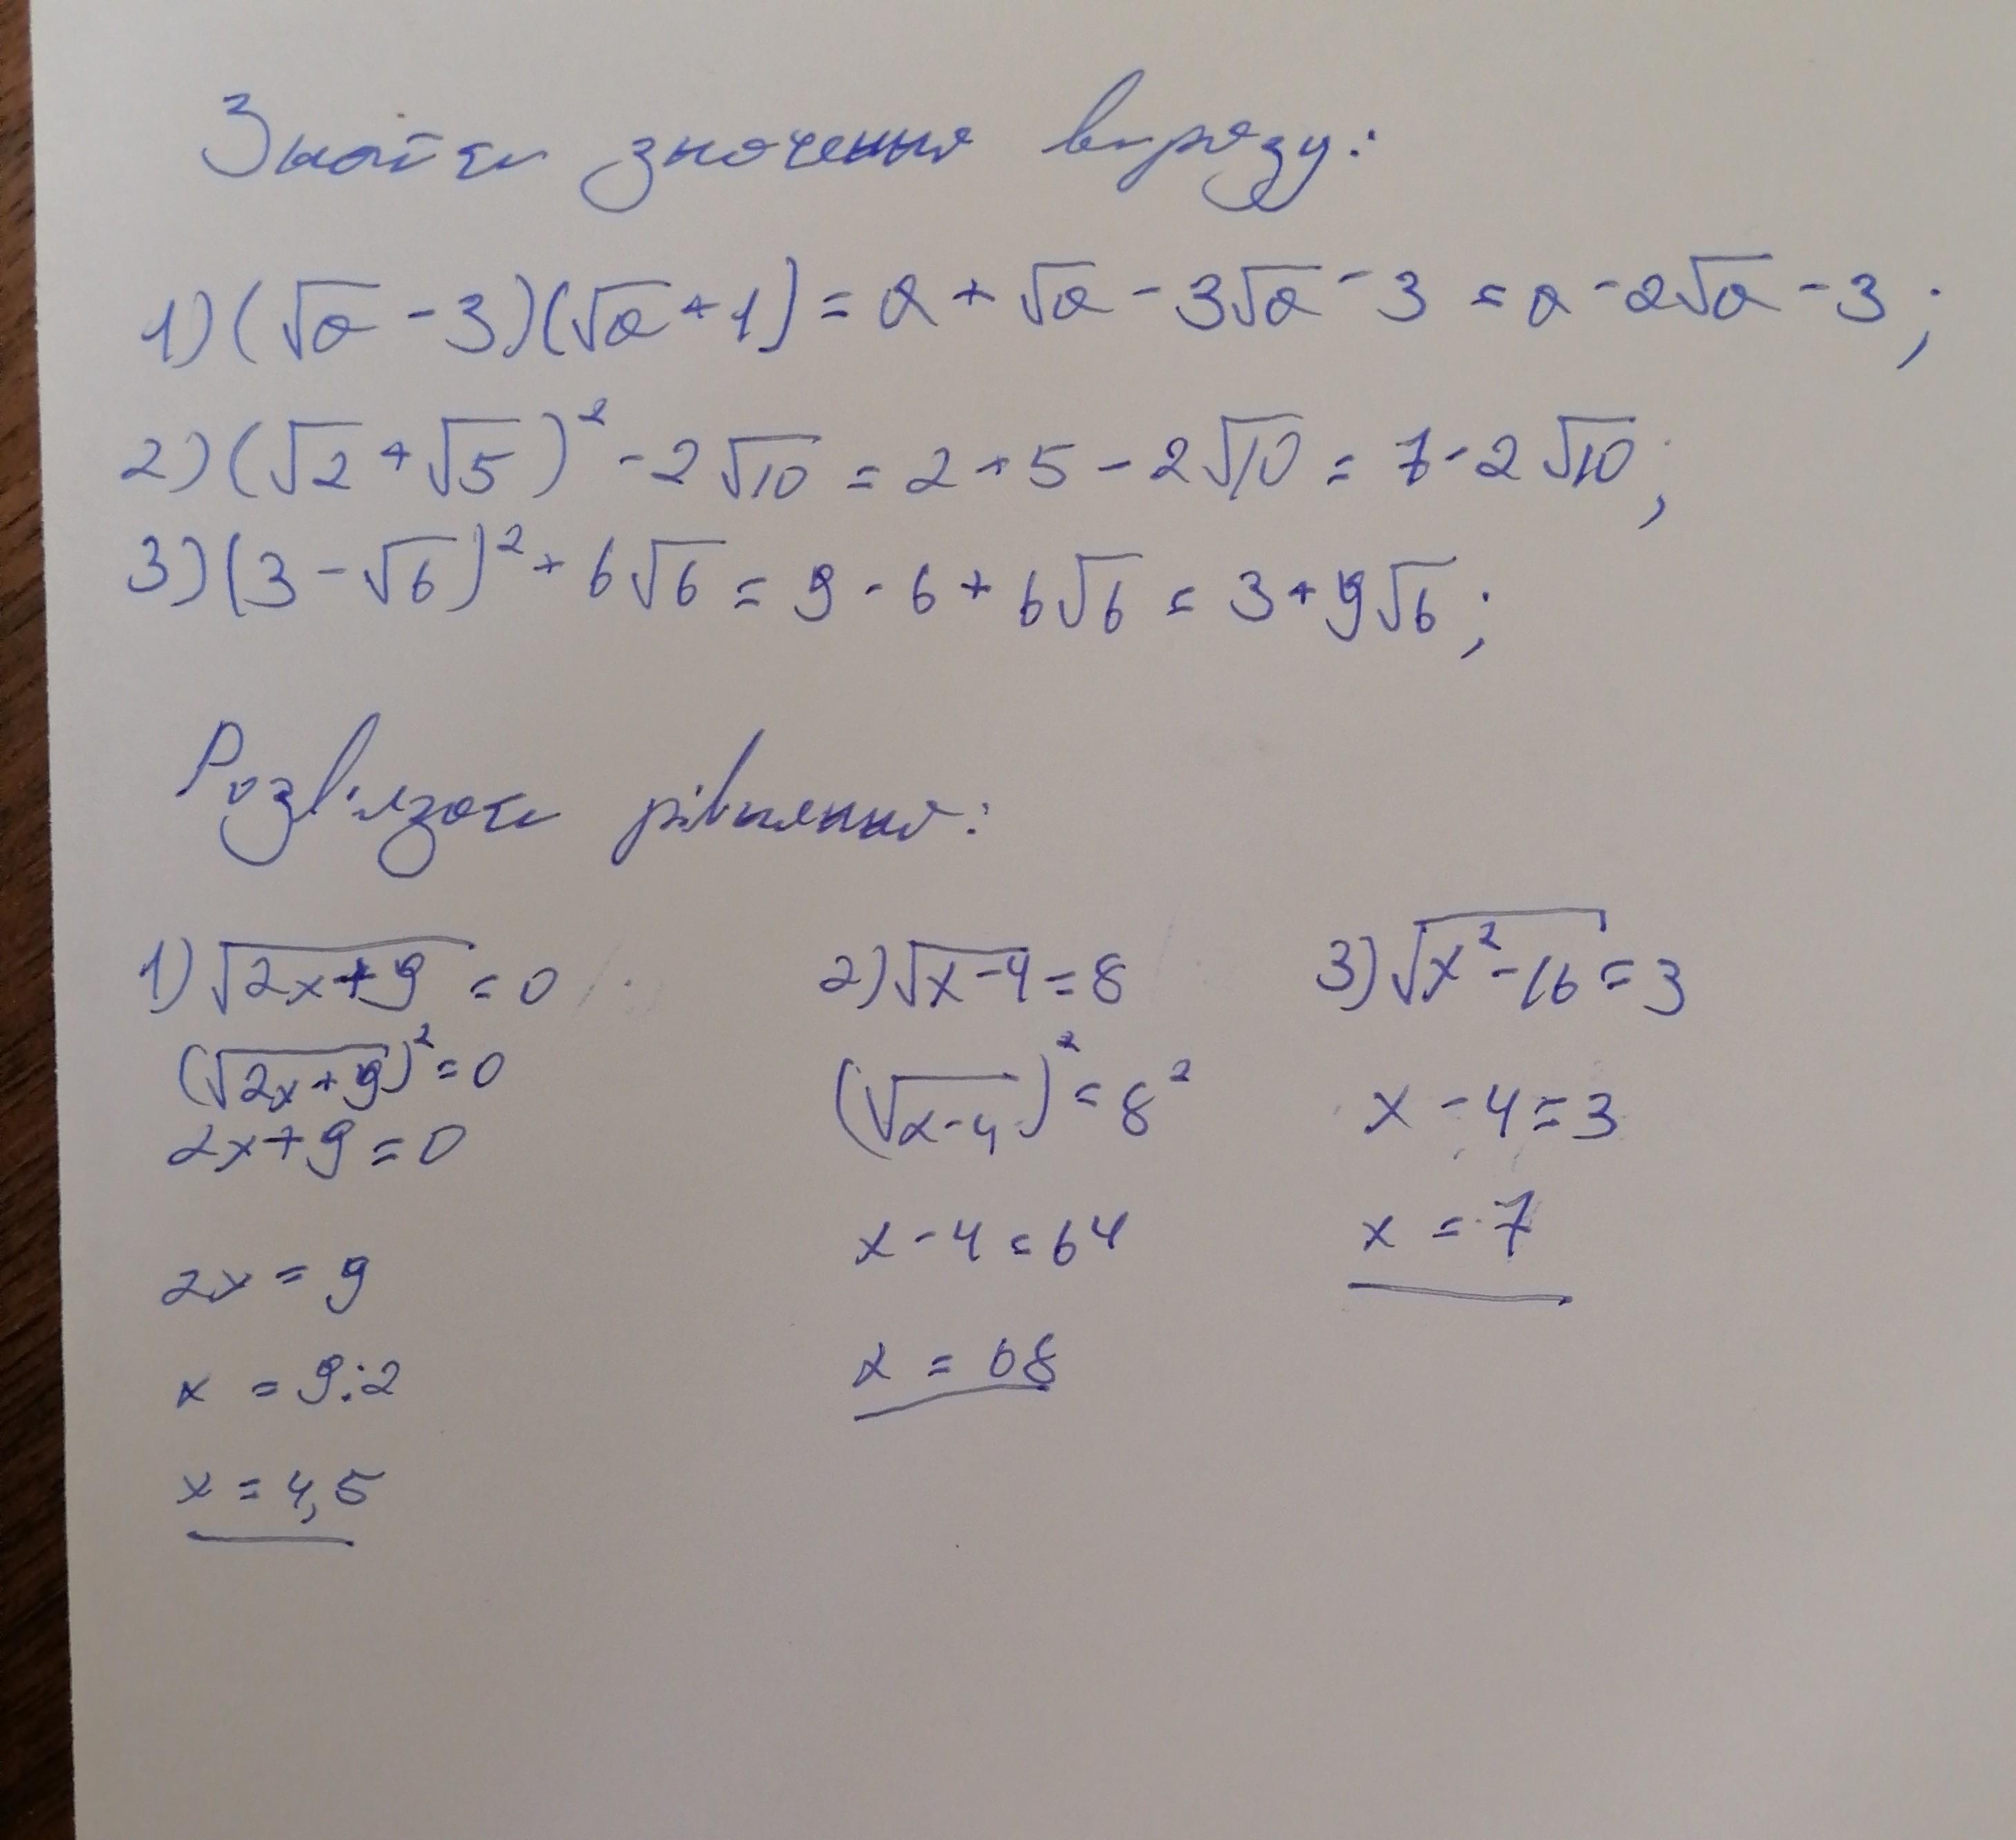 Знайти значення виразу:
1) (√a - 3)(√a + 1) = a + √a - 3√a - 3 = a - 2√a - 3;
2) (√2 + √5)² - 2√10 = 2 + 5 - 2√10 = 7 - 2√10;
3) (3 - √6)² + 6√6 = 9 - 6 + 6√6 = 3 + 9√6;
Розв'язати рівняння:
1) √(2x+9) = 0
(√(2x+9))² = 0
2x+9 = 0
2x = 9
x = 9:2
x = 4,5
2) √(x-4) = 8
(√(x-4))² = 8²
x - 4 = 64
x = 68
3) √(x²-16) = 3
x - 4 = 3
x = 7